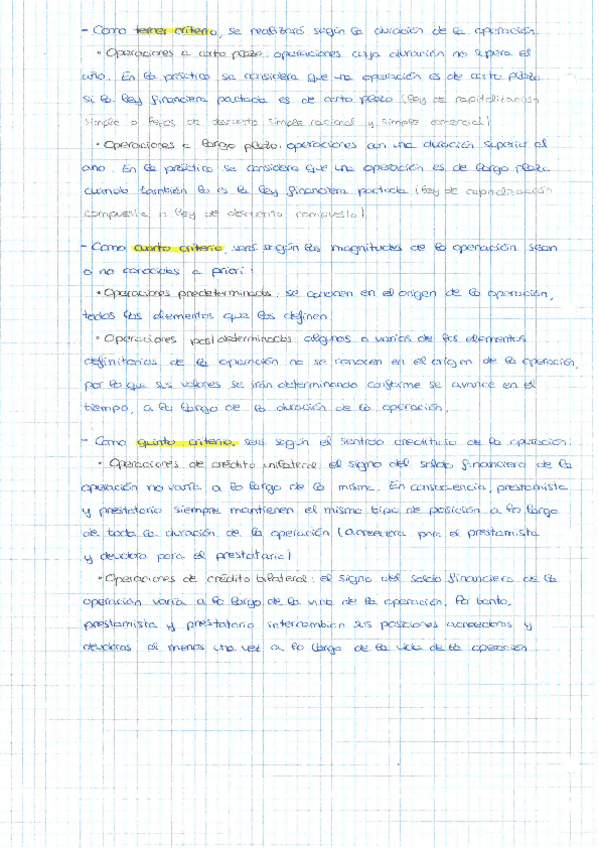 - Como tercer criterio, se realizará según la duración de la operación.
• Operaciones a corto plazo: operaciones cuya duración no supera el
año. En la práctica se considera que una operación es de corto plazo
si la ley financiera pactada es de corto plazo (ley de capitalización
simple o leyes de descuento simple racional y simple comercial)
• Operaciones a largo plazo: operaciones con una duración superior al
año. En la práctica se considera que una operación es de largo plazo
cuando también lo es la ley financiera pactada (ley de capitalización
compuesta o ley de descuento compuesto).
- Como cuarto criterio, será según las magnitudes de la operación sean
o no conocidas a priori:
• Operaciones predeterminadas: se conocen en el origen de la operación,
todos los elementos que las definen.
• Operaciones postdeterminadas: algunos o varios de los elementos
definitorios de la operación no se conocen en el origen de la operación,
por lo que sus valores se irán determinando conforme se avance en el
tiempo, a lo largo de la duración de la operación.
- Como quinto criterio, será según el sentido crediticio de la operación:
• Operaciones de crédito unilateral: el signo del saldo financiero de la
operación no varía a lo largo de la misma. En consecuencia, prestamista
y prestatario siempre mantienen el mismo tipo de posición a lo largo
de toda la duración de la operación (acreedora para el prestamista
y deudora para el prestatario)
• Operaciones de crédito bilateral: el signo del saldo financiero de la
operación varía a lo largo de la vida de la operación. Por tanto,
prestamista y prestatario intercambian sus posiciones acreedoras y
deudoras al menos una vez a lo largo de la vida de la operación